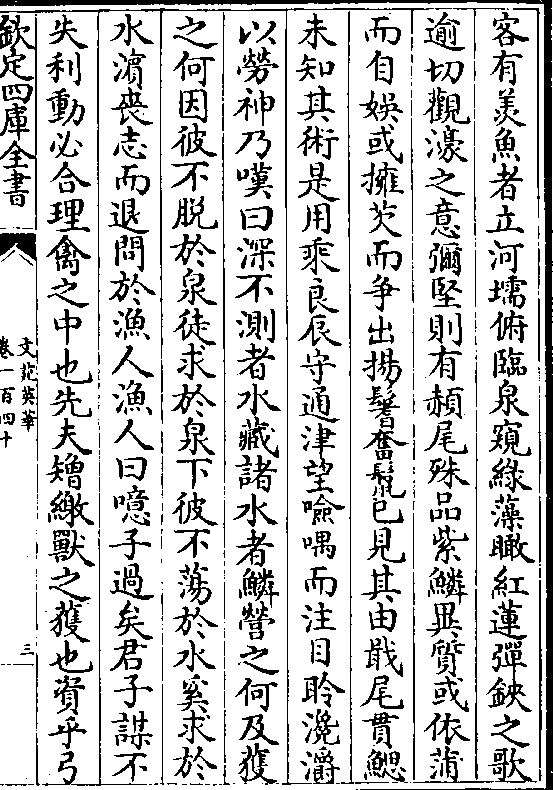 客有羨魚者立河壖俯臨泉窺綠藻瞰紅蓮彈鋏之歌
逾切觀濠之意彌堅則有赬尾殊品紫鱗異質或依蒲
而自娛或擁茨而争出揚鬐奮鬛已見其由戢尾貫鰓
未知其術是用乘良辰守通津望噞喁而注目聆瀺灂
以勞神乃嘆曰深不測者水藏諸水者鱗營之何及獲
之何因彼不脱於泉徒求於泉下彼不蕩於水奚求於
水濵喪志而退問於漁人漁人曰噫子過矣君子謀不
失利動必合理禽之中也先夫矰繳獸之獲也資乎弓
欽定四庫全書
文苑英華
卷一百四十
三